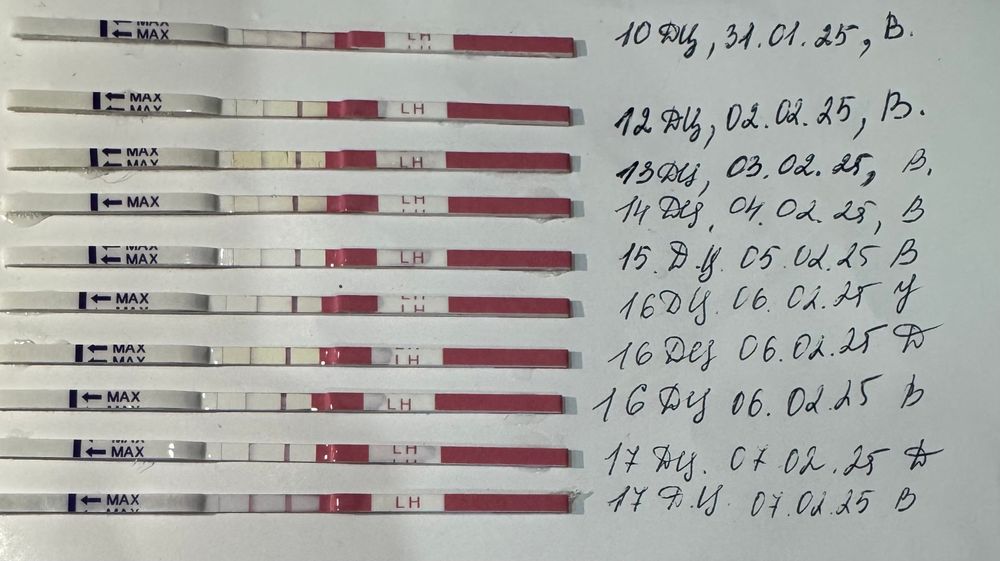 MAX
MAX LH 10 ДЦ, 31.01.25, В.
MAX
MAX LH 12 ДЦ, 02.02.25, В.
MAX
MAX LH 13 ДЦ, 03.02.25, В.
MAX LH 14 ДЦ, 04.02.25, В
MAX
MAX LH 15. Д.Ц. 05.02.25 В
MAX LH 16 ДЦ. 06.02.25 У
MAX
MAX LH 16 ДЦ 06.02.25 Д
MAX LH 16 ДЦ 06.02.25 В
MAX
MAX LH 17 ДЦ. 07 02.25 Д
MAX LH 17 Д.Ц. 07.02.25 В